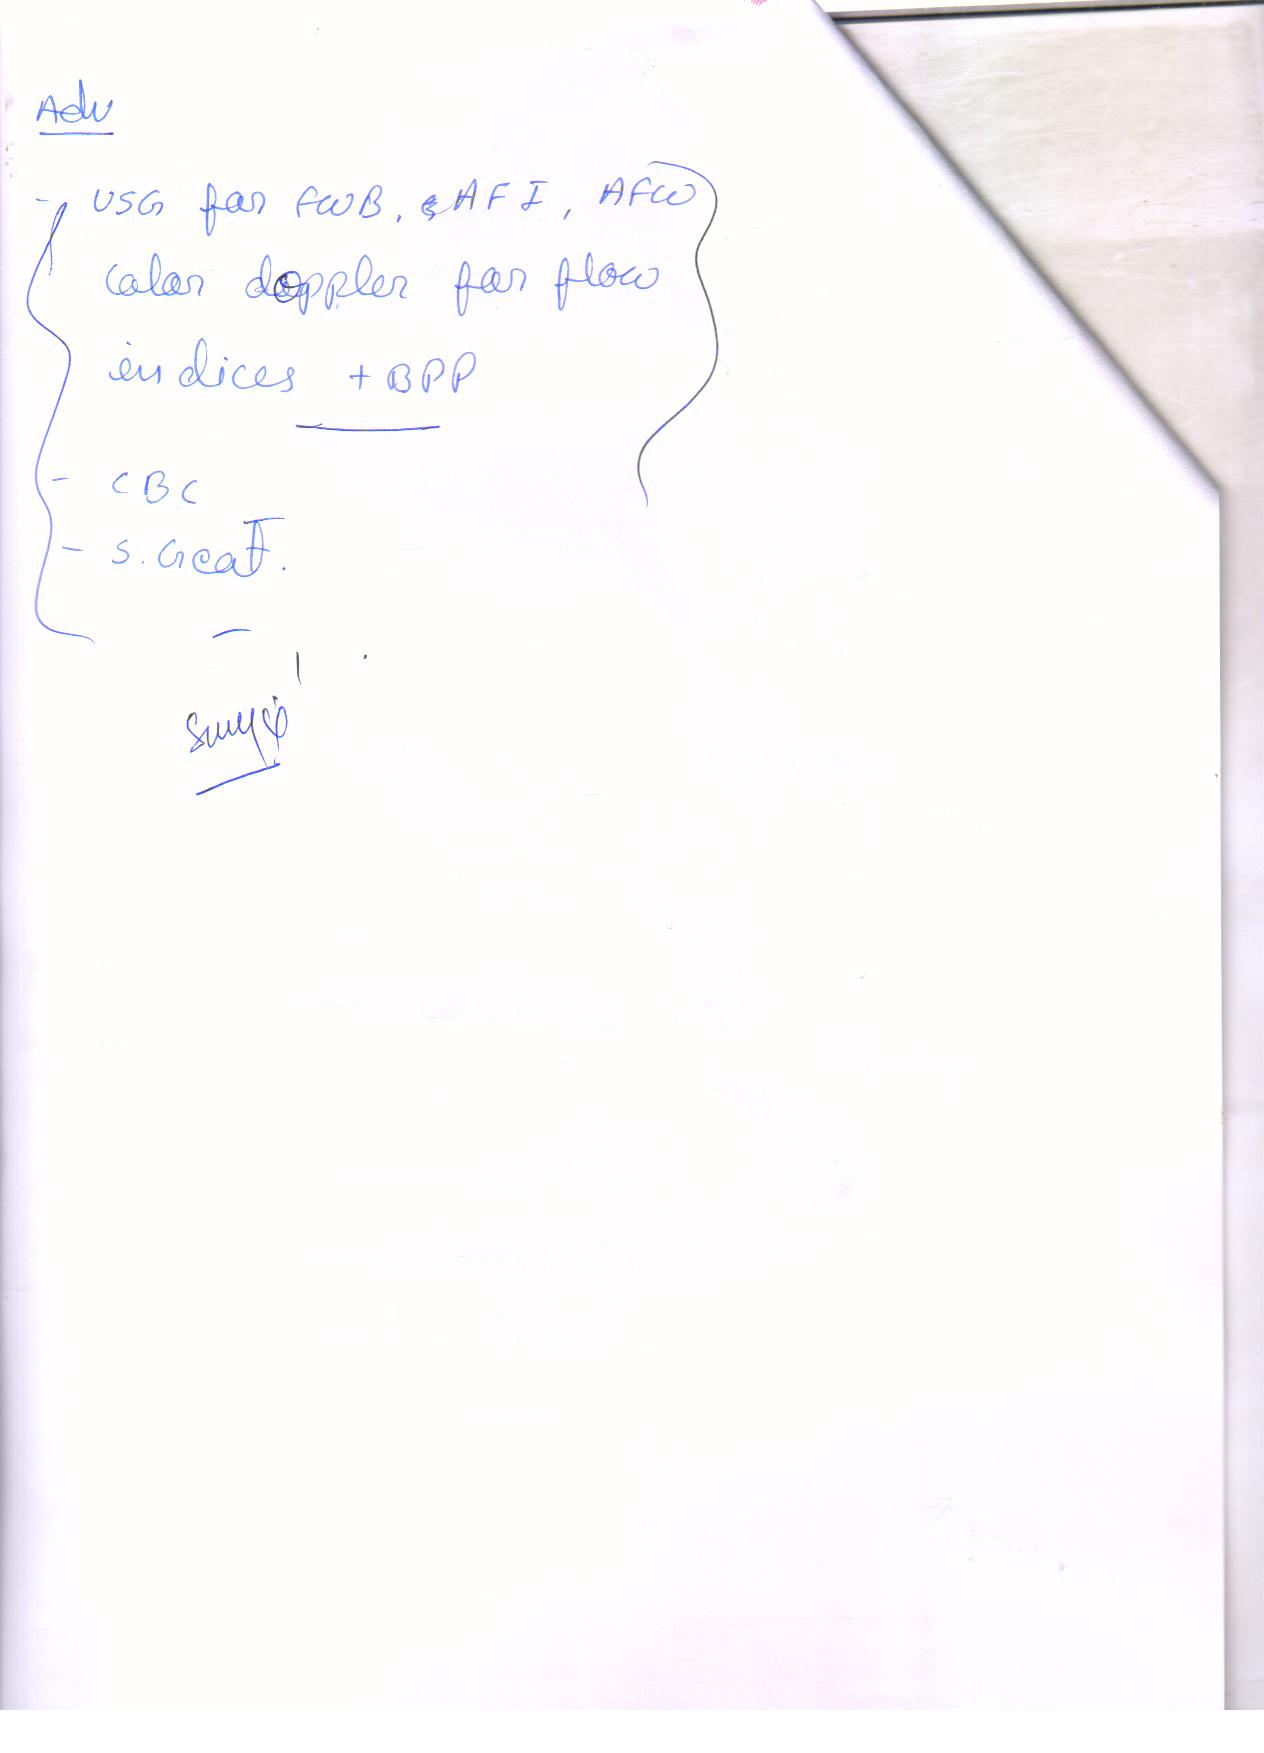 Adv
- USG for FWB, AFI, AFW
color doppler for flow
indices + BPP
- CBC
- S. Creat.